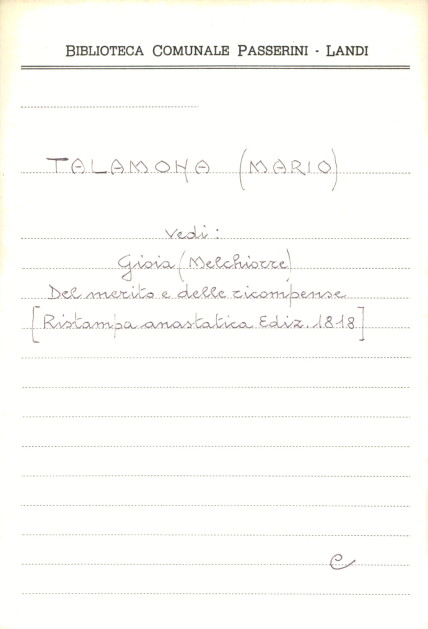 BIBLIOTECA COMUNALE PASSERINI - LANDI
TALAMONA (MARIO)
vedi:
Gioia (Melchiorre)
Del merito e delle ricompense
[Ristampa anastatica Ediz. 1818]
C